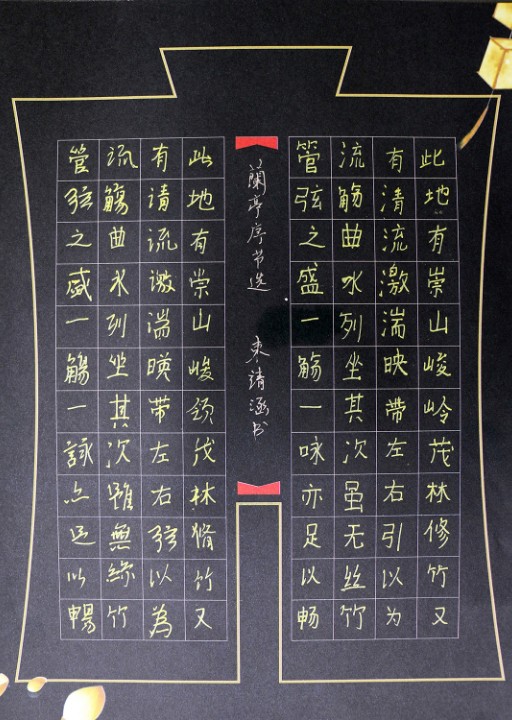 此地有崇山峻岭茂林修竹又
有清流激湍映带左右引以为
流觞曲水列坐其次虽无丝竹
管弦之盛一觞一咏亦足以畅
蘭亭序节选 涵书
此地有崇山峻領茂林脩竹又
有清流激湍暎带左右弦以為
流觴曲水列坐其次雖無絲竹
管弦之盛一觴一詠亦足以暢